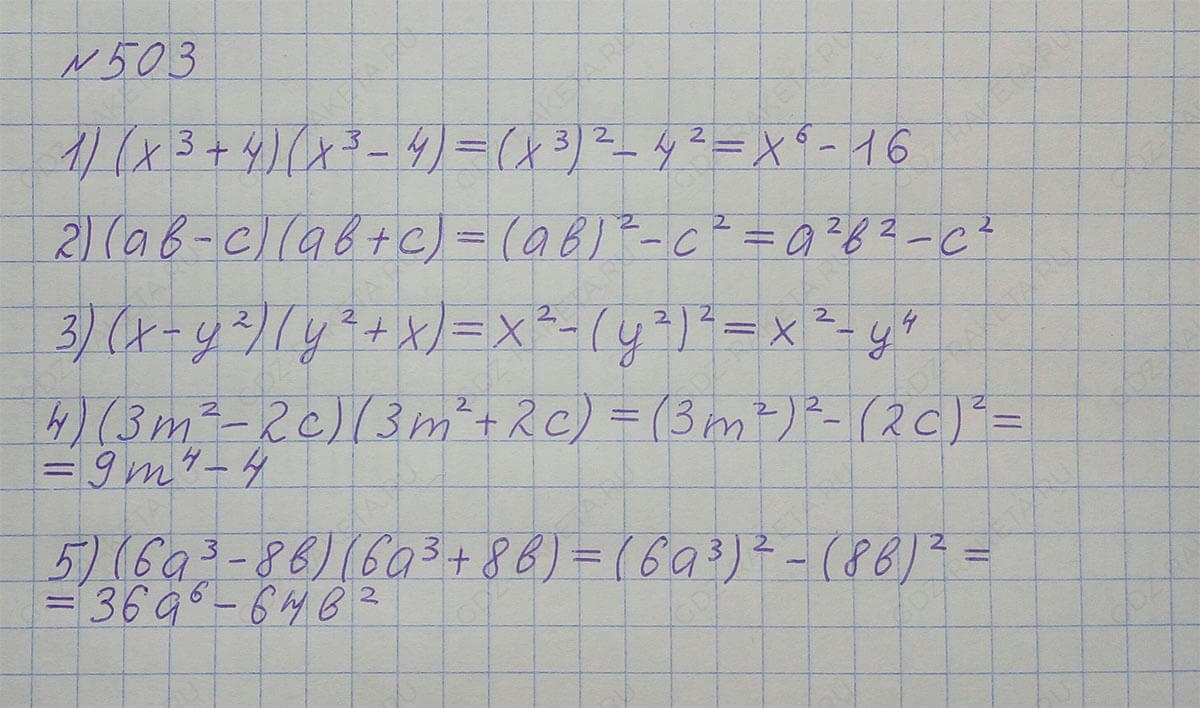 №503
1) (x³ + 4)(x³ - 4) = (x³)² - 4² = x⁶ - 16
2) (ab - c)(ab + c) = (ab)² - c² = a²b² - c²
3) (x - y²)(y² + x) = x² - (y²)² = x² - y⁴
4) (3m² - 2c)(3m² + 2c) = (3m²)² - (2c)² =
= 9m⁴ - 4
5) (6a³ - 8b)(6a³ + 8b) = (6a³)² - (8b)² =
= 36a⁶ - 64b²